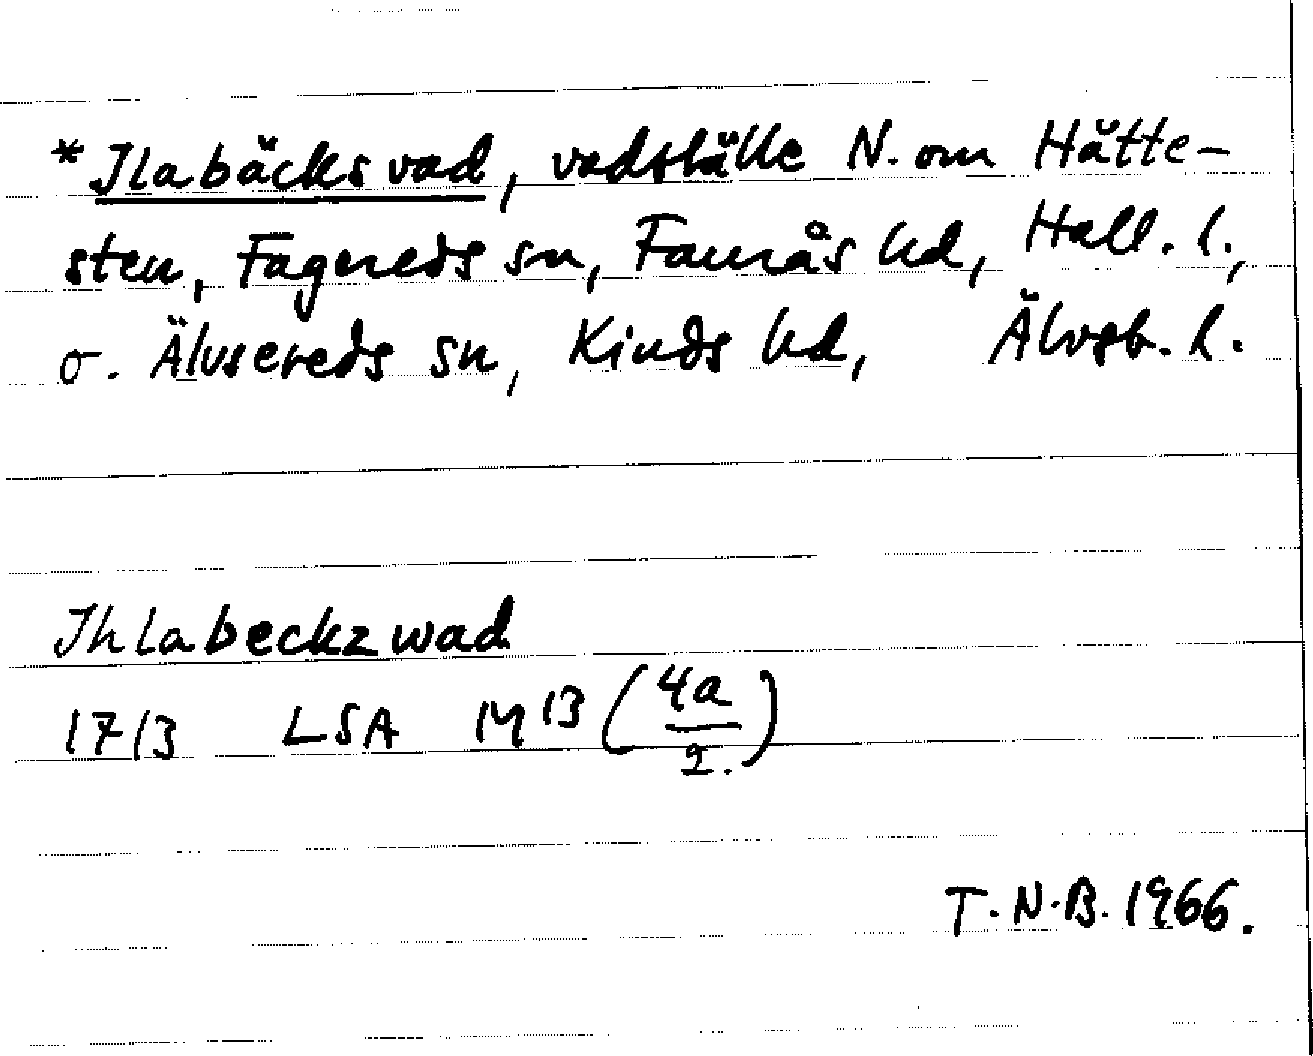 *Ilabäcksvad, vadställe N. om Hätte-
sten, Fagereds sn, Faurås hd, Hall. l.,
o. Älvsereds sn, Kinds hd, Älvsb. l.
Ihlabeckzwad
1713 LSA M 13 (4a/2.)
T.N.B. 1966.